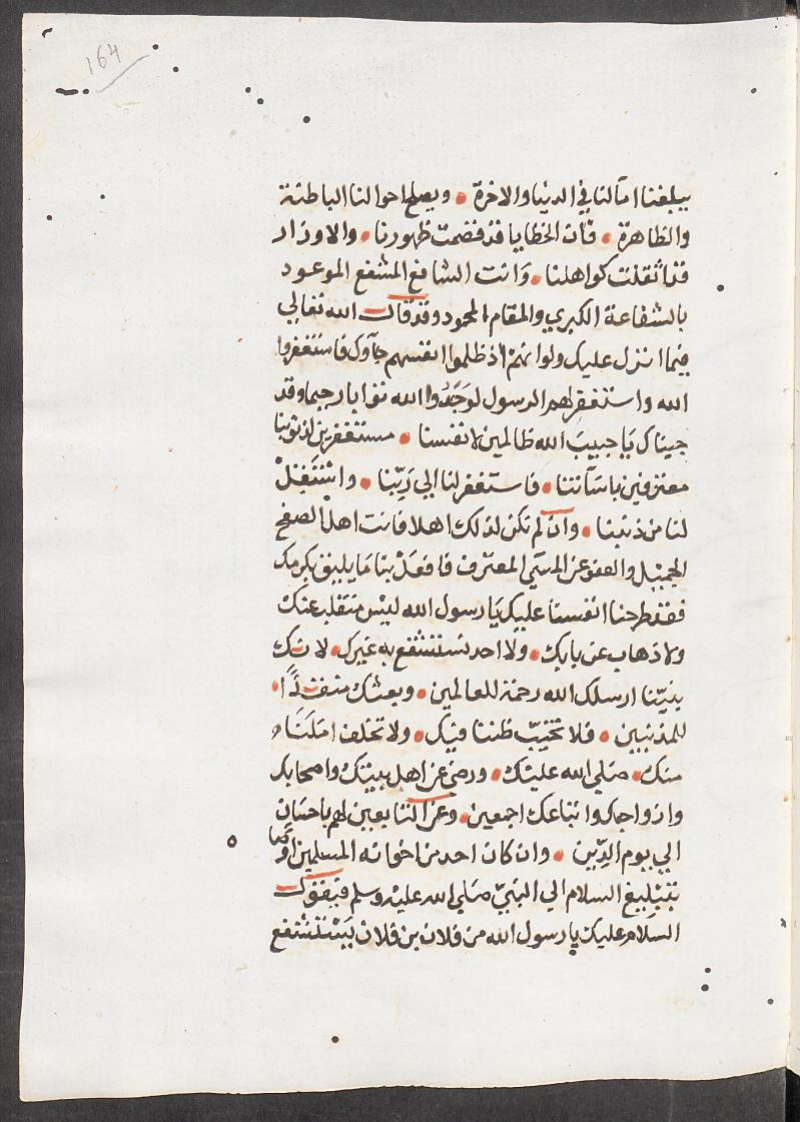 164
يبلغنا امآلنا في الدنيا والاخرة • ويصلح احوالنا الباطنة
والظاهرة • فان الخطايا قد قصمت ظهورنا • والاوزار
قد اثقلت كواهلنا • وانت الشافع المشفع الموعود
بالشفاعة الكبري والمقام المحمود وقد قال الله تعالي
فيما انزل عليك ولو انهم اذ ظلموا انفسهم جآوك فاستغفروا
الله واستغفر لهم الرسول لوجدوا الله توابا رحيما وقد
جيناك يا حبيب الله ظالمين لانفسنا • مستغفرين لذنوبنا
معترفين باسآتنا • فاستغفر لنا الي ربّنا • واشتغل
لنا من ذنبنا • وان لم نكن لذلك اهلا فانت اهل الصفح
الجميل والعفو عن المسي المعترف فافعل بنا ما يليق بكرمك
فقد طرحنا انفسنا عليك يا رسول الله ليس منقلب عنك
ولا ذهاب عن بابك • ولا احد نستشفع به غيرك • لانك
نبيّنا ارسلك الله رحمة للعالمين • وبعثك منقذًا •
للمذنبين • فلا تخيّب ظننا فيك • ولا تخلف املنا
منك • صلي الله عليك • ورضي عن اهل بيتك واصحابك
وازواجك واتباعك اجمعين • وعن التابعين لهم باحسان
الي يوم الدّين • وان كان احد من اخوانه المسلمين اوصا
بتبليغ السلام الي النبيّ صلي الله عليه وسلم فيقول
السلام عليك يا رسول الله من فلان بن فلان يستشفع